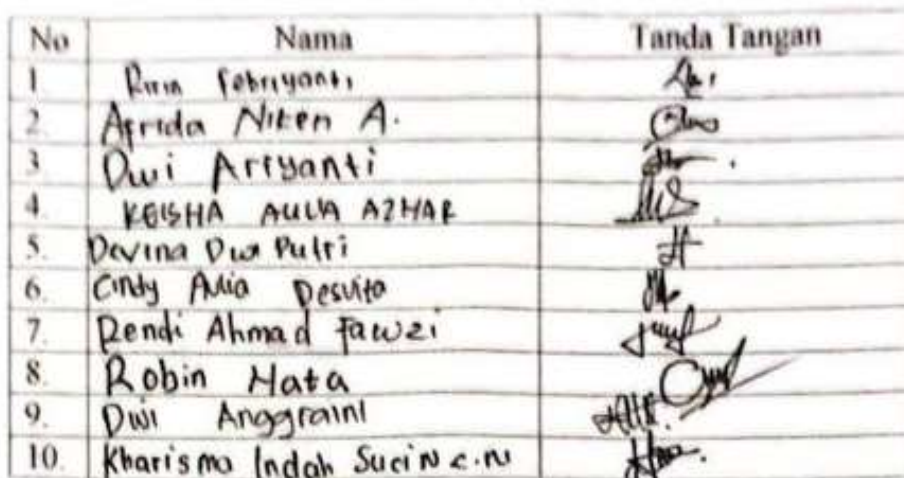 No Nama Tanda Tangan
1 Ririn Febriyanti
2. Afrida Niken A.
3 Dwi Arryanti
4. KEISHA AULIA AZHAR
5. Devina Dwi Putri
6. Cindy Aulia Desvita
7. Rendi Ahmad Fawzi
8. Robin Hata
9. Dwi Anggraini
10. Kharisma Indah Suci N